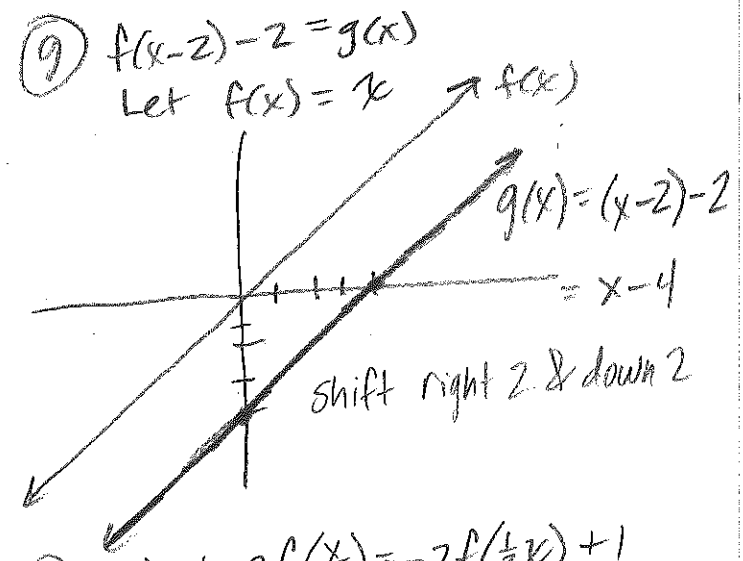 9 f(x-2)-2=g(x)
Let f(x)=x
f(x)
g(x)=(x-2)-2
= x-4
shift right 2 & down 2
f(x)=-2f(½x)+1